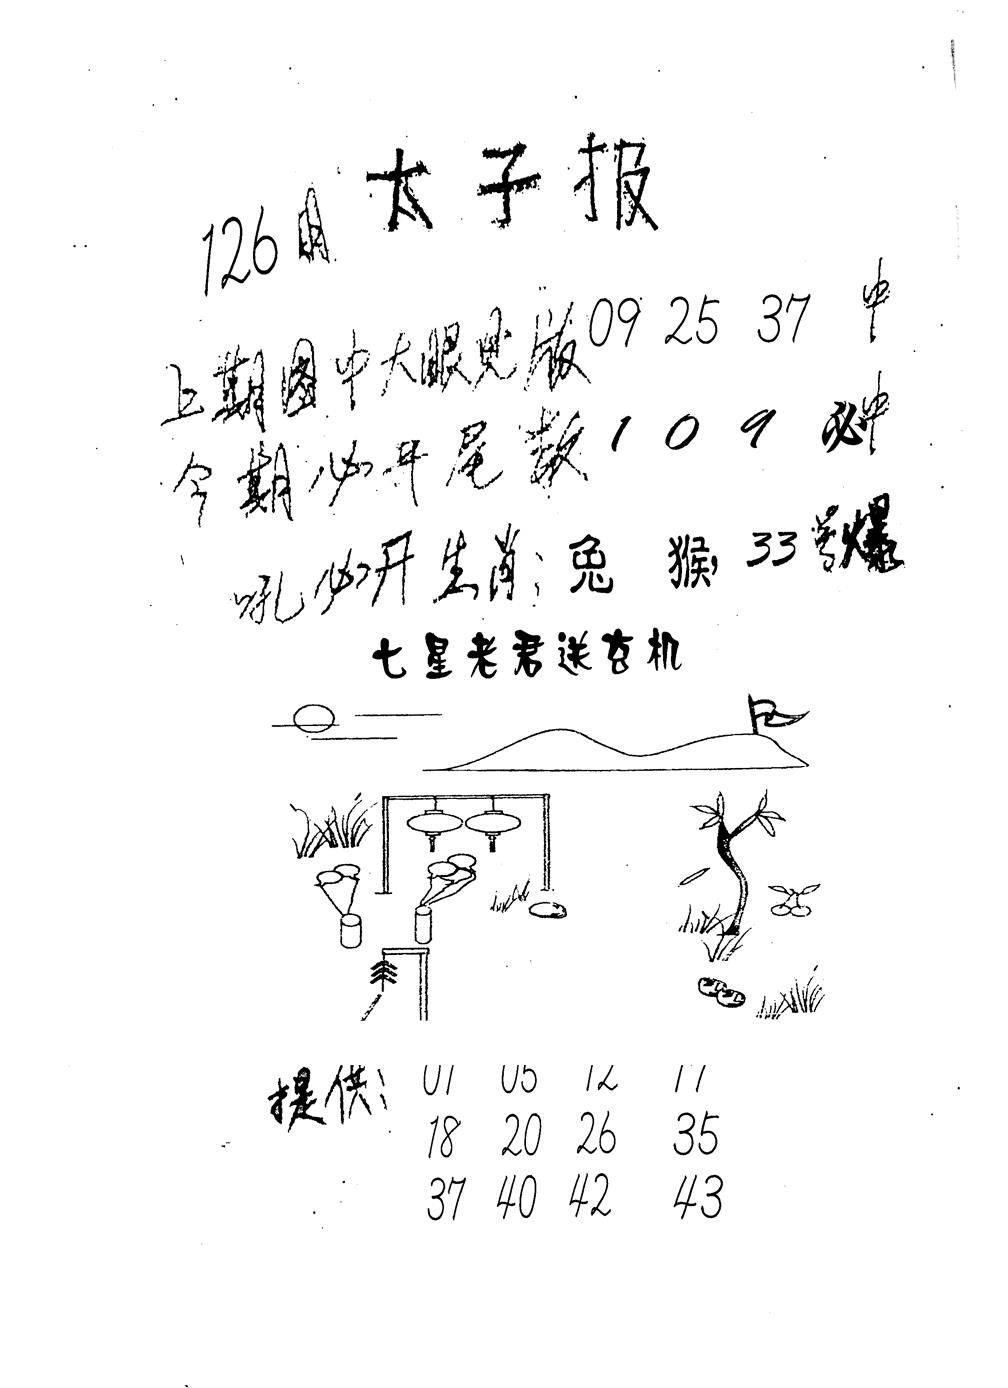 太子报
126期
上期图中大眼见版09 25 37 中
今期必开尾数1 0 9 必中
吼必开生肖：兔 猴，33号爆
七星老君送玄机
提供：01 05 12 17
18 20 26 35
37 40 42 43